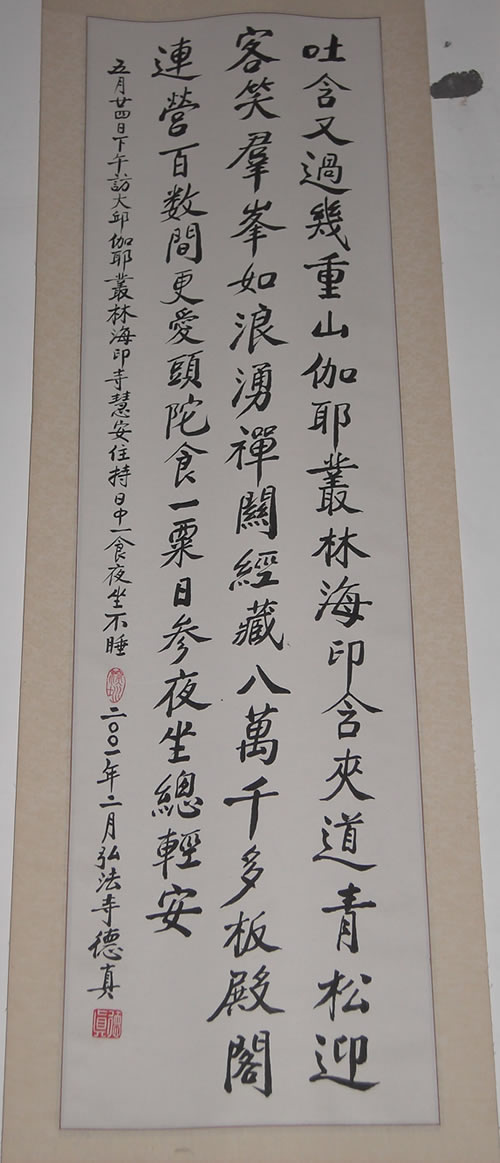 吐含又過幾重山伽耶叢林海印含夾道青松迎
客笑羣峯如浪湧禪關經藏八萬千多板殿閣
連營百数間更愛頭陀食一粟日参夜坐總輕安
五月廿四日下午訪大邱伽耶叢林海印寺慧安住持日中一食夜坐不睡
二〇〇一年二月弘法寺德真